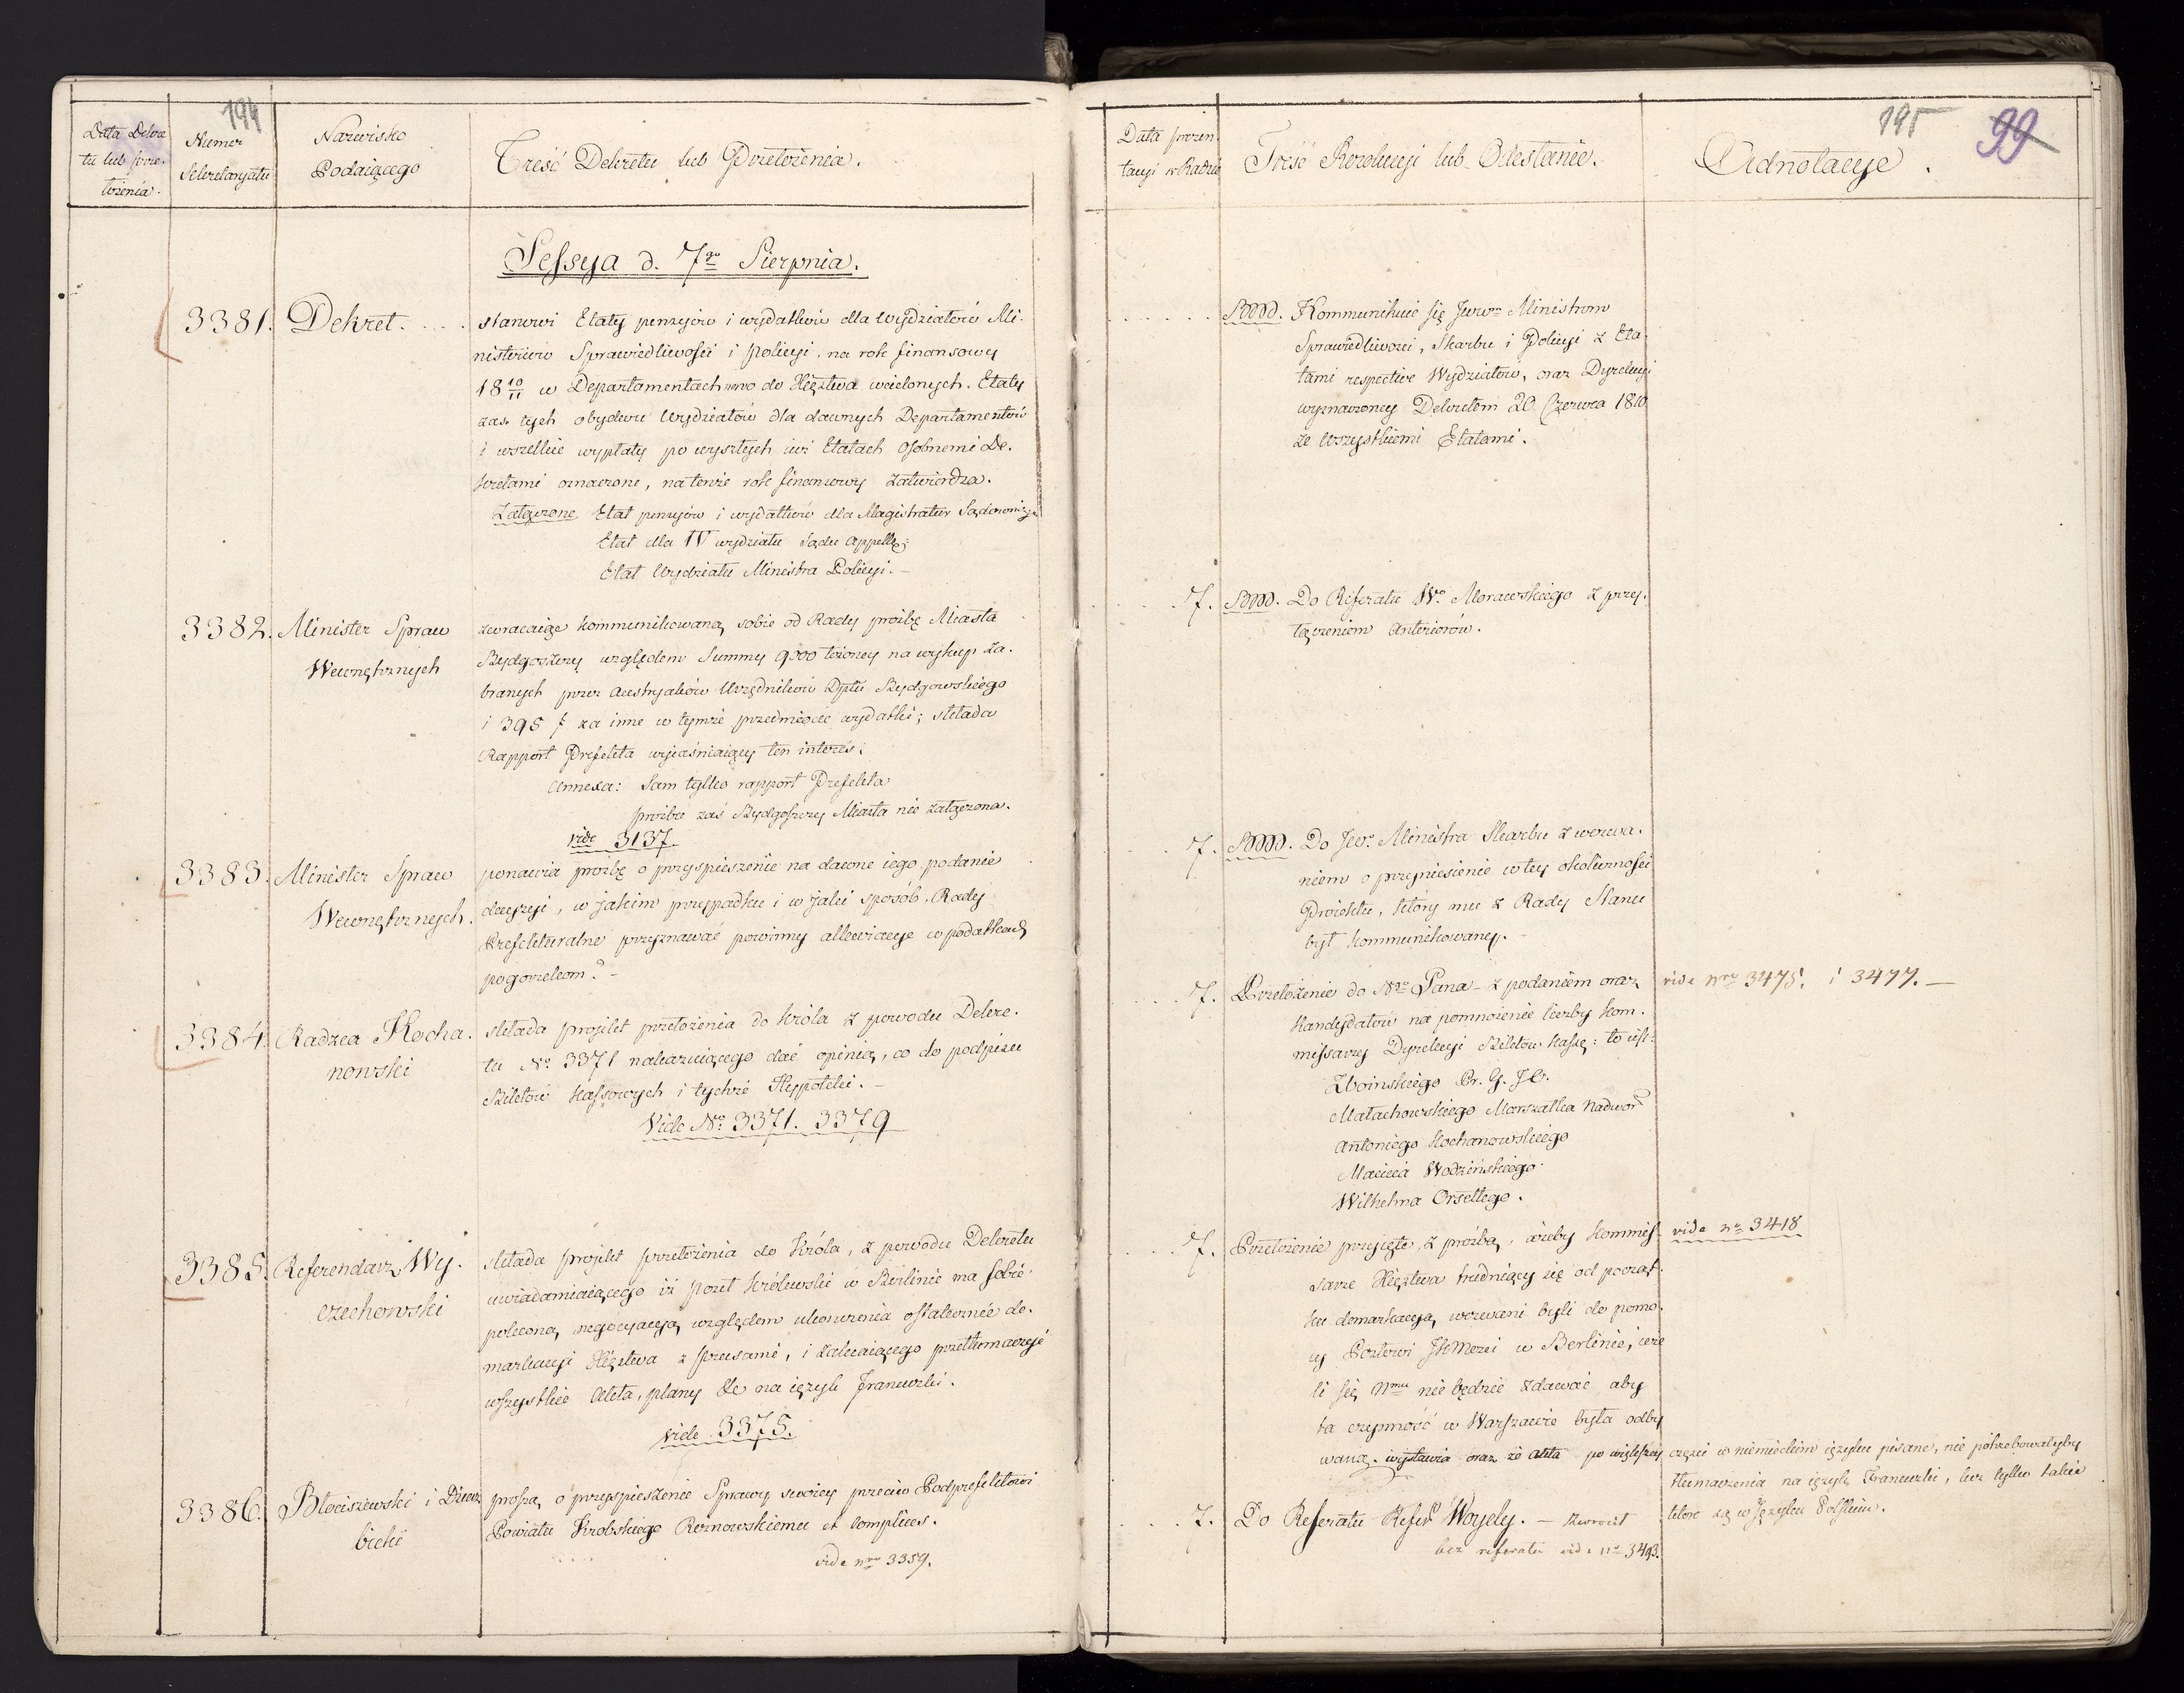 194
Data Dekre
tu lub prze-
łożenia.
Numer
Sekretaryatu
Nazwisko
Podaiącego
Treść Dekretu lub Przełożenia.
Sessya d. 7go Sierpnia.
3381. Dekret. . . . stanowi Etaty pensyiów i wydatków dla Wydziałów Mi-
nisteriów Sprawiedliwości i Policyi, na rok finansowy
18 10/11 w Departamentach nowo do Xięztwa wcielonych. Etaty
zas tych obydwu Wydziałów dla dawnych Departamentów
i wszelkie wypłaty po wyszłych iuż Etatach osobnemi De-
kretami oznaczone, na tenże rok finansowy zatwierdza.
Załączone Etat pensyiów i wydatków dla Magistratur Sądowniczych
Etat dla IV wydziału Sądu Appell:
Etat Wydziału Ministra Policyi. –
3382. Minister Spraw
Wewnętrznych
zwracaiąc kommunikowaną sobie od Rady proźbę Miasta
Bydgoszczy względem Summy 9000 łożoney na wykup za-
branych przez Austryaków Urzędników Dptu Bydgowskiego
i 395 f za inne w tymże przedmiocie wydatki; składa
Rapport Prefekta wyiaśniaiący ten interes:
Annexa: Sam tylko rapport Prefekta
proźba zaś Bydgoszczy Miasta nie załączona.
vide 3137.
3383. Minister Spraw
Wewnętrznych.
ponawia proźbę o przyspieszenie na dawne iego podanie
decyzyi, w jakim przypadku i w jaki sposób, Rady
Prefekturalne przyznawać powinny allewiacye w podatkach
pogorzelcom? –
3384. Radzca Kocha-
nowski
składa projekt przełożenia do Króla z powodu Dekre-
tu No 3371 nakazuiącego dać opinią, co do podpisu
Biletów kassowych i tychże Hypoteki. –
Vide No 3371. 3379
3385. Referendarz Wy-
czechowski
składa projekt przełożenia do Króla, z powodu Dekretu
uwiadamiaiącego iż poseł Królewski w Berlinie ma sobie
poleconą negocyacyą względem ukończenia ostatecznie de-
markacyi Xięztwa z Prusami, i zalecaiącego przetłumaczyć
wszystkie Akta, plany &c na ięzyk francuzki.
vide 3375.
3386. Błociszewski i Dzierz
bicki
proszą o przyspieszenie Sprawy swoiey przeciw Podprefektowi
Powiatu Krobskiego Rernowskiemu et complices.
vide nro 3359.
195
99
Data prezen
tacyi w Radzie
Treść Rezolucyi lub Odesłanie.
Adnotacye.
Kommunikuie się Jwwm Ministrom
Sprawiedliwości, Skarbu i Policyi z Eta-
tami respective Wydziałów, oraz Dyrekcyi
wyznaczoney Dekretem 20 Czerwca 1810
ze wszystkiemi Etatami.
7. Do Referatu Wo Morawskiego z przy-
łączeniem anteriorów.
7. Do Jwo Ministra Skarbu z wezwa-
niem o przyniesienie w tey okoliczności
Proiektu, który mu z Rady Stanu
był kommunikowany. –
7. Przełożenie do Ngo Pana – z podaniem oraz
kandydatów na pomnożenie liczby kom-
missarzy Dyrekcyi Biletów kass: to iest:
Zboinskiego Pr. G. JO.
Małachowskiego Marszałka Nadwor
Antoniego Kochanowskiego
Macieia Wodzińskiego
Wilhelma Orsettego.
vide nro 3475. i 3477. –
7. Przełożenie przyięte, z proźbą, ażeby kommis-
sarze Xięztwa trudniący się od począt-
ku demarkacyą wezwani byli do pomo-
cy Posłowi JKMości w Berlinie, ieże
li się Nmu nie będzie zdawać aby
ta czynność w Warszawie była odby
waną. wystawia oraz że akta po większey części w niemieckim ięzyku pisane, nie potrzebowałyby
tłumaczenia na ięzyk Francuzki, lecz tylko takie
które są w Języku Polskim.
vide no 3418
7. Do Referatu Refer Woyely. – zwrócił
bez referatu vide no 3493.